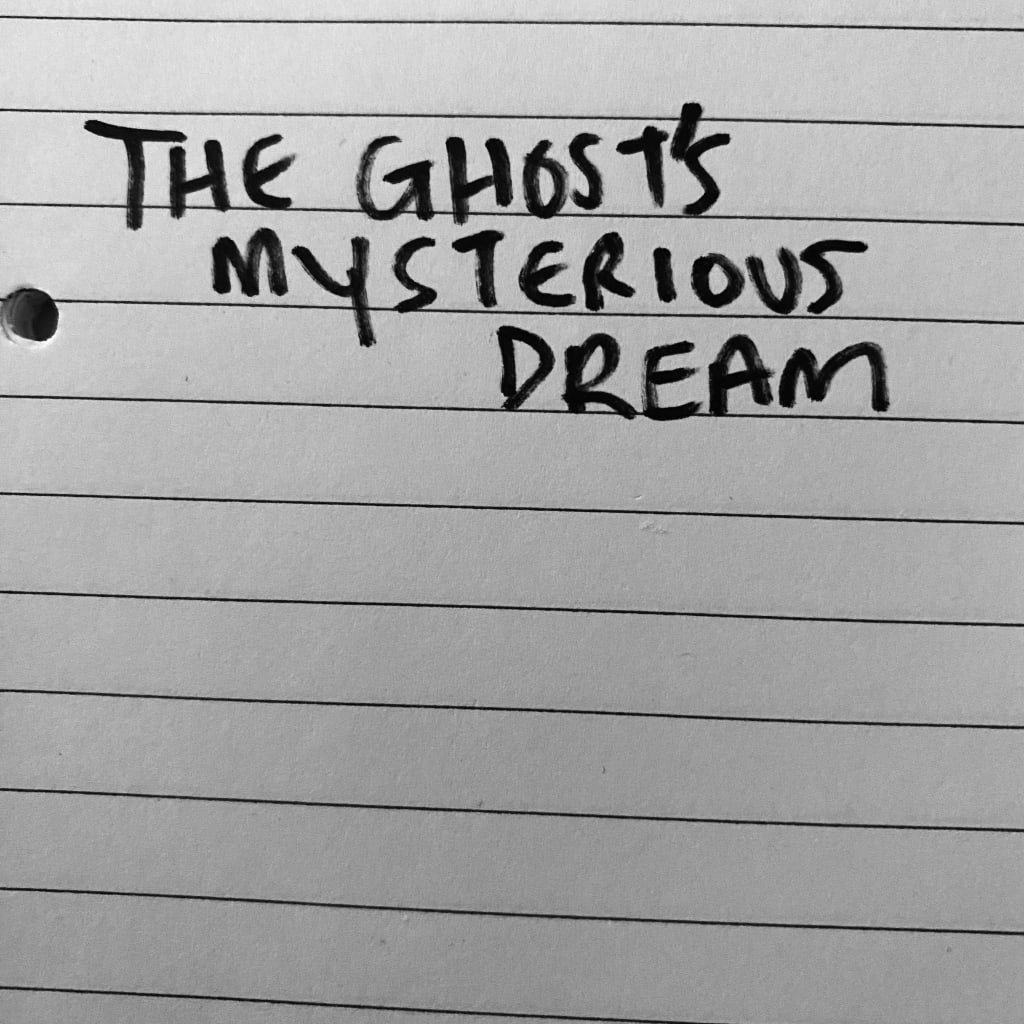 THE GHOST'S
MYSTERIOUS
DREAM